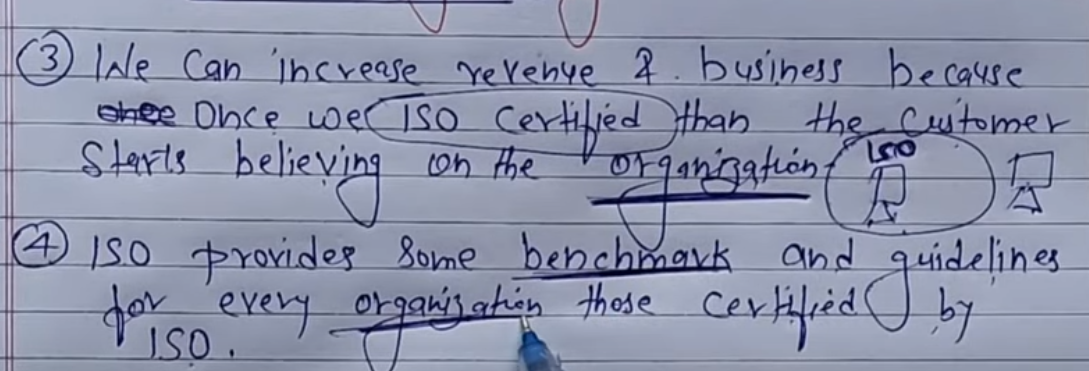 ③ We Can increase revenue & . business because
Once we ISO Certified than the Customer
Starts believing on the organization
ISO
④ ISO provides some benchmark and guidelines
for every organization those certified by
ISO.